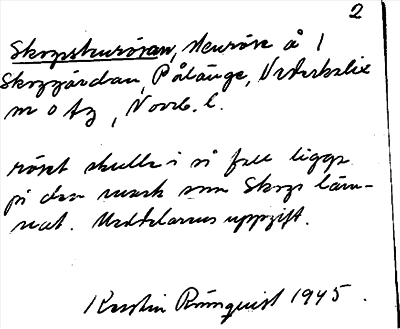 2
Skogsturöjan, stenröse å 1
Skoggårdan, Pålänge, Nederkalix
sn o tg, Norrb. l.
röset skulle i så fall ligga
på den mark som Skogs läm-
nat. Meddelarens uppgift.
Kerstin Rönnqvist 1945.